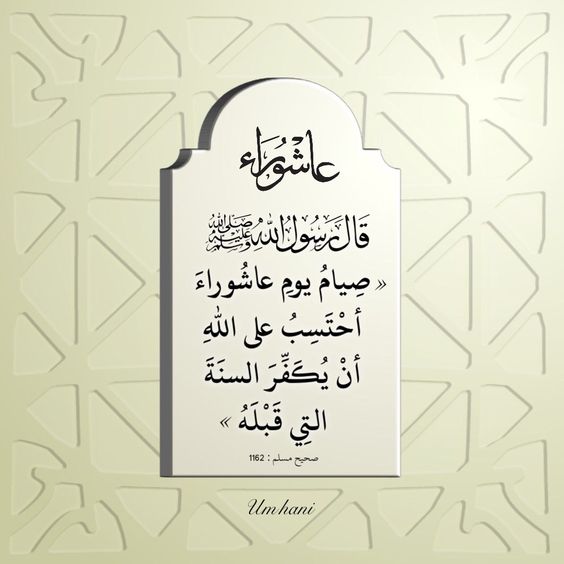 عاشُورَاء
قَالَ رَسُولُ اللهِ صَلَّى اللهُ عَلَيْهِ وَسَلَّمَ
« صِيامُ يومِ عاشُوراءَ
أحْتَسِبُ على اللهِ
أنْ يُكَفِّرَ السنَةَ
التِي قَبْلَهُ »
صحيح مسلم : 1162
Umhani